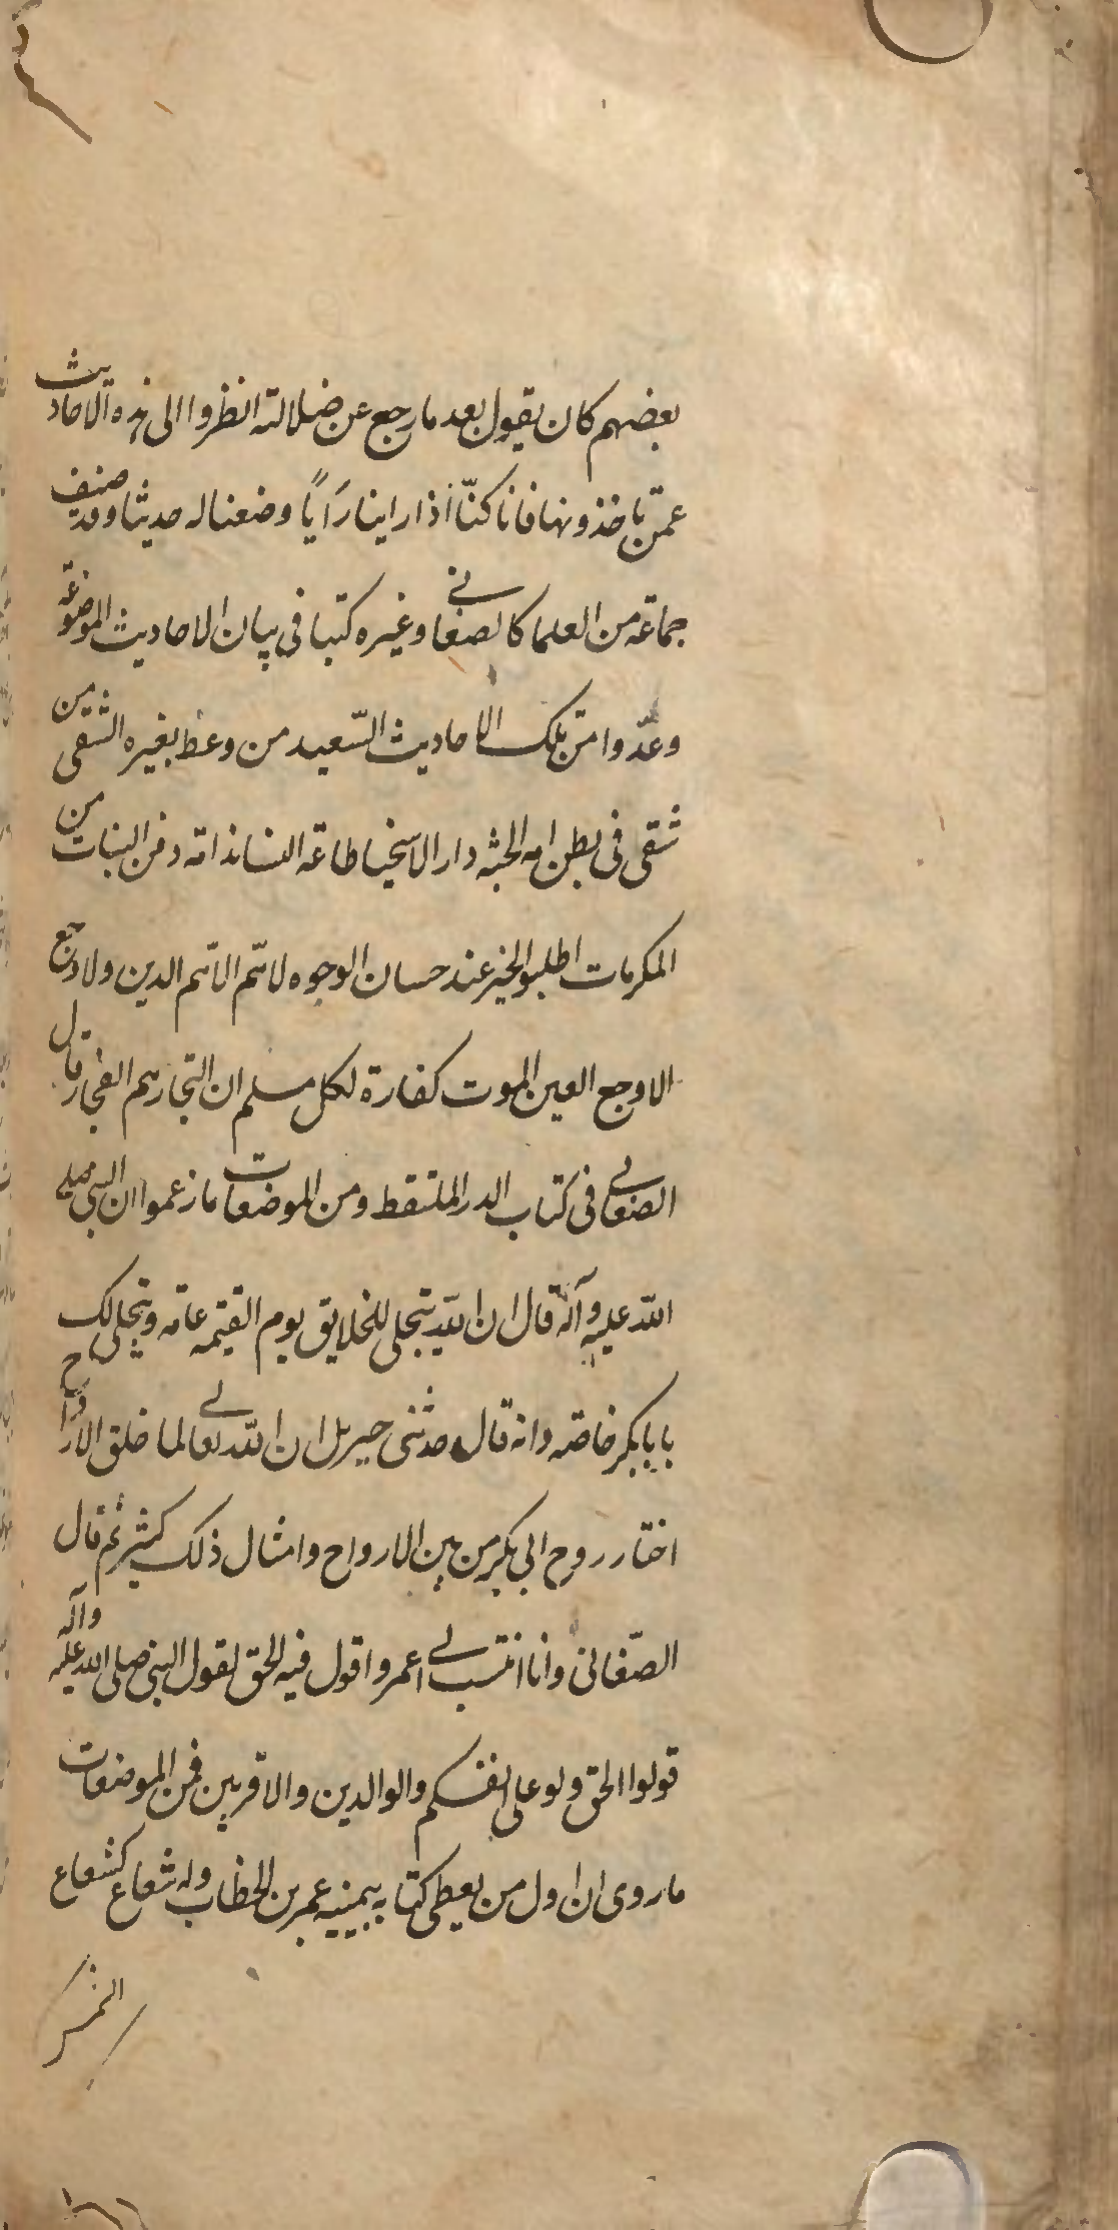 بعضهم كان يقول بعد ما رجع عن ضلالته انظروا الى هذه الاحاديث
عمّن تاخذونها فانا كنّا اذا راينا رَاياً وضعنا له حديثا وقد صنف
جماعة من العلما كالصغانے وغيره كتبا فى بيان الاحاديث الموضوعة
وعدّوا من تلك الاحاديث السّعيد من وعظ بغيره الشقى من
شقى فى بطن امه الجنة دار الاسخيا طاعة النسا ندامة دفن البنات من
المكرمات اطلبوا الخير عند حسان الوجوه لا همّ الا هم الدين ولا وجع
الا وجع العين الموت كفارة لكل مسلم ان التجار هم الفجار قال
الصغانے فى كتاب الدر الملتقط ومن الموضوعات ما زعموا ان النبى صلى
الله عليه وآله قال ان الله يتجلى للخلايق يوم القيمه عامة ويتجلى لك
يا بابكر خاصة وانه قال حدثنى جبريل ان الله تعالے لما خلق الارواح
اختار روح ابى بكر من بين الارواح وامثال ذلك كثير ثم قال
الصّغانى وانا انتسب الے عمر واقول فيه الحق لقول النبى صلى الله عليه وآله
قولوا الحق ولو على انفسكم والوالدين والاقربين فمن الموضوعات
ما روى ان اول من يعطى كتابه بيمينه عمر بن الخطاب وله شعاع كشعاع
الشمس